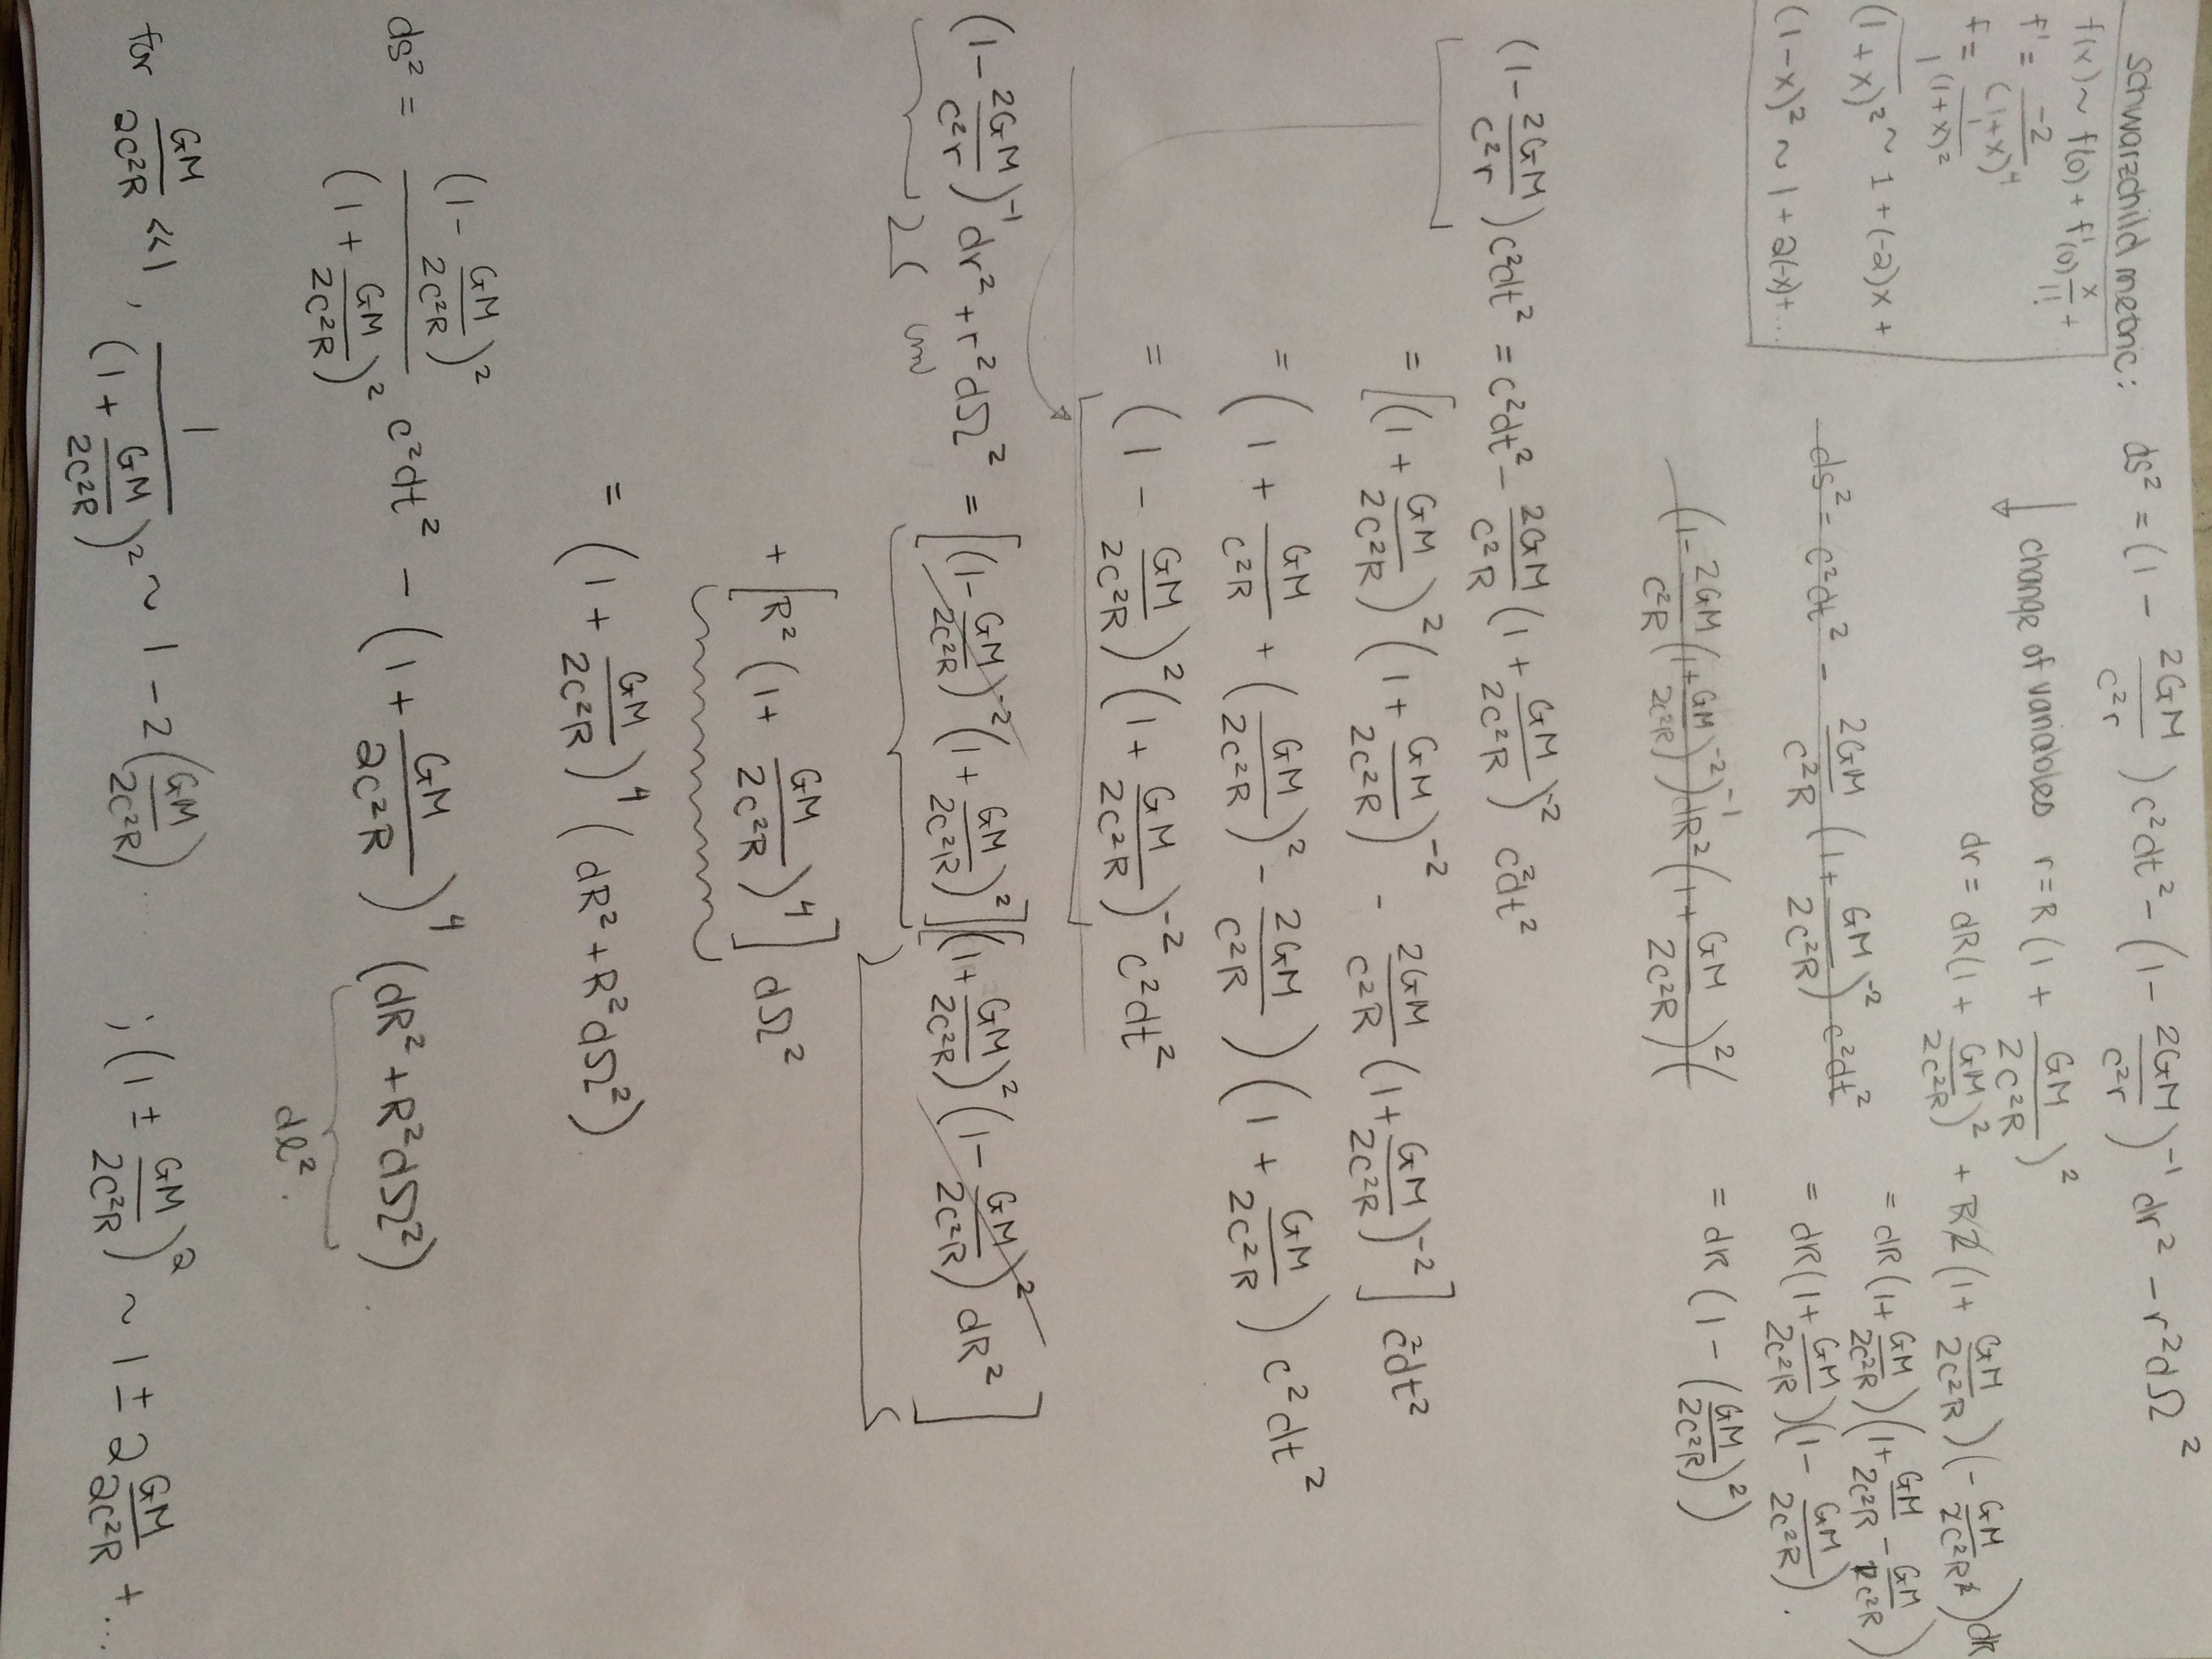 Schwarzchild metric: ds² = (1 - 2GM/c²r) c²dt² - (1 - 2GM/c²r)⁻¹ dr² - r²dΩ²
f(x) ~ f(0) + f'(0) x/1! +
f' = -2/(1+x)⁴
f = 1/(1+x)²
1/(1+x)² ~ 1 + (-2)x +
(1-x)² ~ 1 + 2(-x) + ...
↓ change of variables r = R(1 + GM/2c²R)²
dr = dR(1 + GM/2c²R)² + R2(1 + GM/2c²R)(-GM/2c²R²)dR
= dR(1 + GM/2c²R)(1 + GM/2c²R - GM/2c²R)
ds² = c²dt² - 2GM/c²R (1 + GM/2c²R)⁻² c²dt²
= dR(1 + GM/2c²R)(1 - GM/2c²R).
(1 - 2GM/c²R (1 + GM/2c²R)⁻²)⁻¹ dR² (1 + GM/2c²R)² (
= dR(1 - (GM/2c²R)²)
(1 - 2GM/c²r) c²dt² = c²dt² - 2GM/c²R (1 + GM/2c²R)⁻² c²dt²
= [(1 + GM/2c²R)² (1 + GM/2c²R)⁻² - 2GM/c²R (1 + GM/2c²R)⁻²] c²dt²
= (1 + GM/c²R + (GM/2c²R)² - 2GM/c²R)(1 + GM/2c²R) c²dt²
= (1 - GM/2c²R)² (1 + GM/2c²R)⁻² c²dt²
(1 - 2GM/c²r)⁻¹ dr² + r²dΩ² = [(1 - GM/2c²R)⁻² (1 + GM/2c²R)²][(1 + GM/2c²R)² (1 - GM/2c²R)² dR²]
+ [R² (1 + GM/2c²R)⁴] dΩ²
= (1 + GM/2c²R)⁴ (dR² + R²dΩ²)
ds² = (1 - GM/2c²R)²/(1 + GM/2c²R)² c²dt² - (1 + GM/2c²R)⁴ (dR² + R²dΩ²)
dl².
for GM/2c²R ≪ 1, 1/(1 + GM/2c²R)² ~ 1 - 2(GM/2c²R) ... ; (1 ± GM/2c²R)² ~ 1 ± 2 GM/2c²R + ...